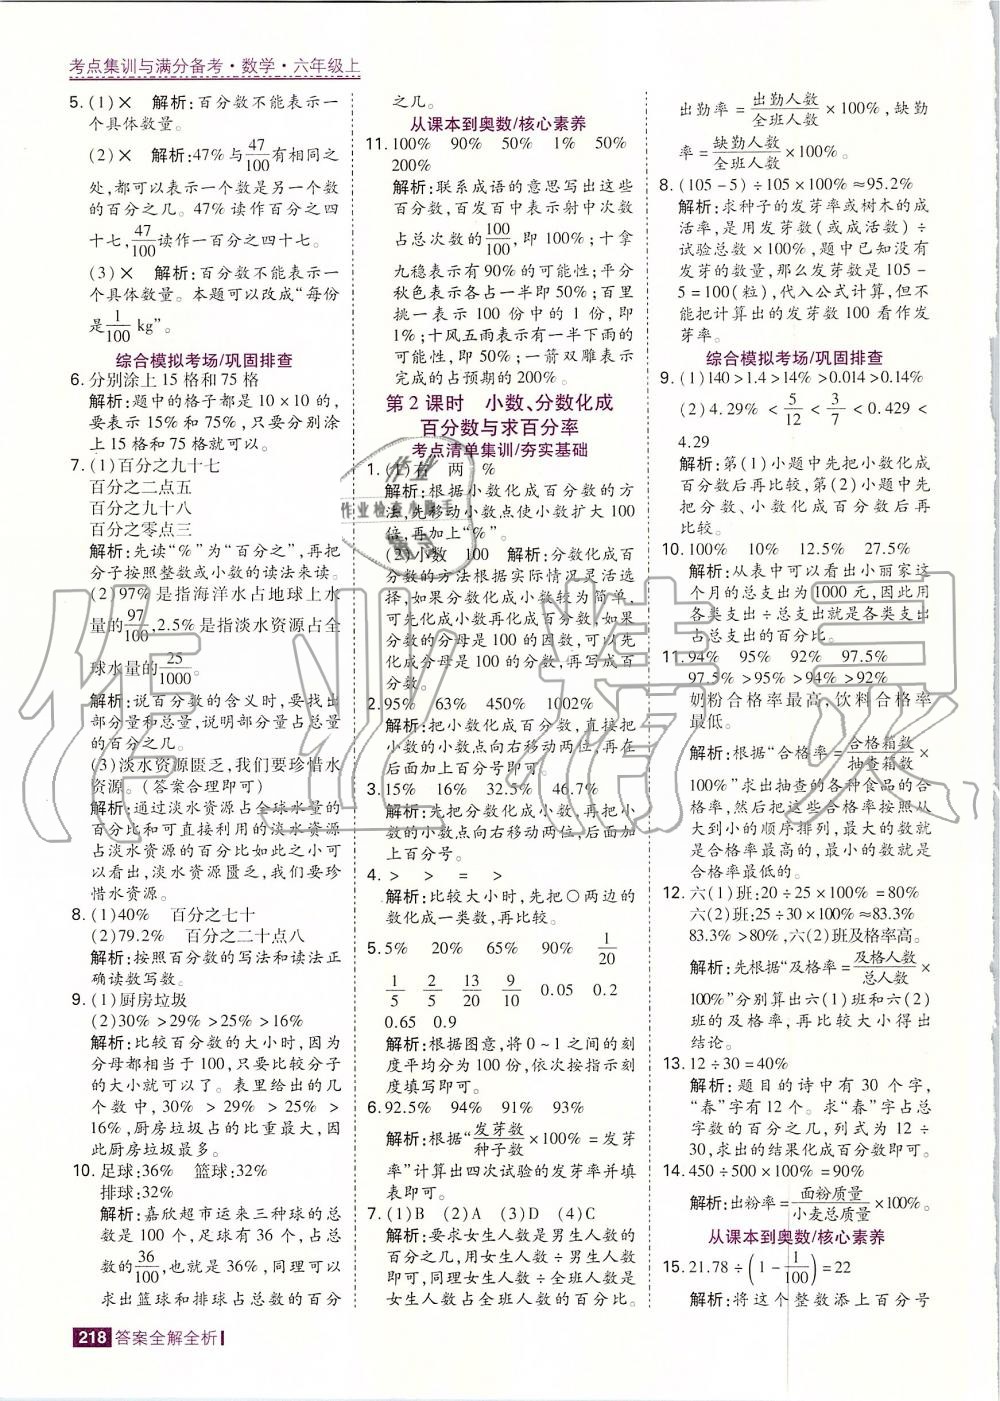 考点集训与满分备考·数学·六年级上
5. (1)× 解析:百分数不能表示一
个具体数量。
(2)× 解析:47%与47/100有相同之
处,都可以表示一个数是另一个数
的百分之几。47%读作百分之四
十七,47/100读作一百分之四十七。
(3)× 解析:百分数不能表示一
个具体数量。本题可以改成“每份
是1/100 kg”。
综合模拟考场/巩固排查
6. 分别涂上15格和75格
解析:题中的格子都是10×10的,
要表示15%和75%,只要分别涂
上15格和75格就可以。
7. (1)百分之九十七
百分之二点五
百分之九十八
百分之零点三
解析:先读“%”为“百分之”,再把
分子按照整数或小数的读法来读。
(2)97%是指海洋水占地球上水
量的97/100,2.5%是指淡水资源占全
球水量的25/1000。
解析:说百分数的含义时,要找出
部分量和总量,说明部分量占总量
的百分之几。
(3)淡水资源匮乏,我们要珍惜水
资源。(答案合理即可)
解析:通过淡水资源占全球水量的
百分比和可直接利用的淡水资源
占淡水资源的百分比如此之小可
以看出,淡水资源匮乏,我们要珍
惜水资源。
8. (1)40% 百分之七十
(2)79.2% 百分之二十点八
解析:按照百分数的写法和读法正
确读数写数。
9. (1)厨房垃圾
(2)30%>29%>25%>16%
解析:比较百分数的大小时,因为
分母都相当于100,只要比较分子
的大小就可以了。表里给出的几
个数中,30%>29%>25%>
16%,厨房垃圾占的比重最大,因
此厨房垃圾最多。
10. 足球:36% 篮球:32%
排球:32%
解析:嘉欣超市运来三种球的总
数是100个,足球有36个,占总
数的36/100,也就是36%,同理可以
求出篮球和排球占总数的百分
之几。
从课本到奥数/核心素养
11. 100% 90% 50% 1% 50%
200%
解析:联系成语的意思写出这些
百分数,百发百中表示射中次数
占总次数的100/100,即100%;十拿
九稳表示有90%的可能性;平分
秋色表示各占一半即50%;百里
挑一表示100份中的1份,即
1%;十风五雨表示有一半下雨的
可能性,即50%;一箭双雕表示
完成的占预期的200%。
第2课时 小数、分数化成
百分数与求百分率
考点清单集训/夯实基础
1. (1)右 两 %
解析:根据小数化成百分数的方
法,先移动小数点使小数扩大100
倍,再加上“%”。
(2)小数 100 解析:分数化成百
分数的方法根据实际情况灵活选
择,如果分数化成小数较为简单,
可先化成小数再化成百分数;如果
分数的分母是100的因数,可以先
化成分母是100的分数,再写成百
分数。
2. 95% 63% 450% 1002%
解析:把小数化成百分数,直接把
小数的小数点向右移动两位,再在
后面加上百分号即可。
3. 15% 16% 32.5% 46.7%
解析:先把分数化成小数,再把小
数的小数点向右移动两位,后面加
上百分号。
4. > > = >
解析:比较大小时,先把○两边的
数化成一类数,再比较。
5. 5% 20% 65% 90% 1/20
1/5 2/5 13/20 9/10 0.05 0.2
0.65 0.9
解析:根据图意,将0~1之间的刻
度平均分为100份,依次按指示刻
度填写即可。
6. 92.5% 94% 91% 93%
解析:根据“发芽数/种子数×100%=发芽
率”计算出四次试验的发芽率并填
表即可。
7. (1)B (2)A (3)D (4)C
解析:要求女生人数是男生人数的
百分之几,用女生人数÷男生人数
即可,同理女生人数÷全班人数是
女生人数占全班人数的百分比。
出勤率=出勤人数/全班人数×100%,缺勤
率=缺勤人数/全班人数×100%。
8. (105-5)÷105×100%≈95.2%
解析:求种子的发芽率或树木的成
活率,是用发芽数(或成活数)÷
试验总数×100%,题中已知没有
发芽的数量,那么发芽数是105-
5=100(粒),代入公式计算,但不
能把计算出的发芽数100看作发
芽率。
综合模拟考场/巩固排查
9. (1)140>1.4>14%>0.014>0.14%
(2)4.29%<5/12<3/7<0.429<
4.29
解析:第(1)小题中先把小数化成
百分数后再比较,第(2)小题中先
把分数、小数化成百分数后再
比较。
10. 100% 10% 12.5% 27.5%
解析:从表中可以看出小丽家这
个月的总支出为1000元,因此用
各类支出÷总支出就是各类支出
占总支出的百分比。
11. 94% 95% 92% 97.5%
97.5%>95%>94%>92%
奶粉合格率最高,饮料合格率
最低。
解析:根据“合格率=合格箱数/抽查箱数×
100%”求出抽查的各种食品的合
格率,然后把这些合格率按照从
大到小的顺序排列,最大的数就
是合格率最高的,最小的数就是
合格率最低的。
12. 六(1)班:20÷25×100%=80%
六(2)班:25÷30×100%≈83.3%
83.3%>80%,六(2)班及格率高。
解析:先根据“及格率=及格人数/总人数×
100%”分别算出六(1)班和六(2)
班的及格率,再比较大小得出
结论。
13. 12÷30=40%
解析:题目的诗中有30个字,
“春”字有12个。求“春”字占总
字数的百分之几,列式为12÷
30,求出的结果化成百分数即可。
14. 450÷500×100%=90%
解析:出粉率=面粉质量/小麦总质量×100%。
从课本到奥数/核心素养
15. 21.78÷(1-1/100)=22
解析:将这个整数添上百分号
218 答案全解全析
作业精灵
作业
作业检查小助手